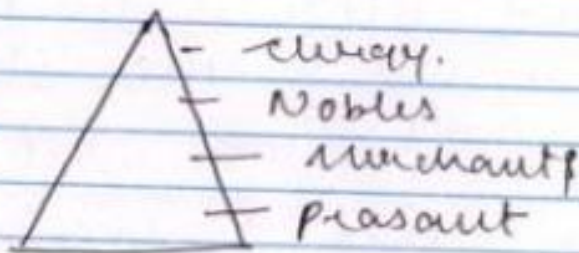 - clergy.
- Nobles
- Merchants
- Peasant